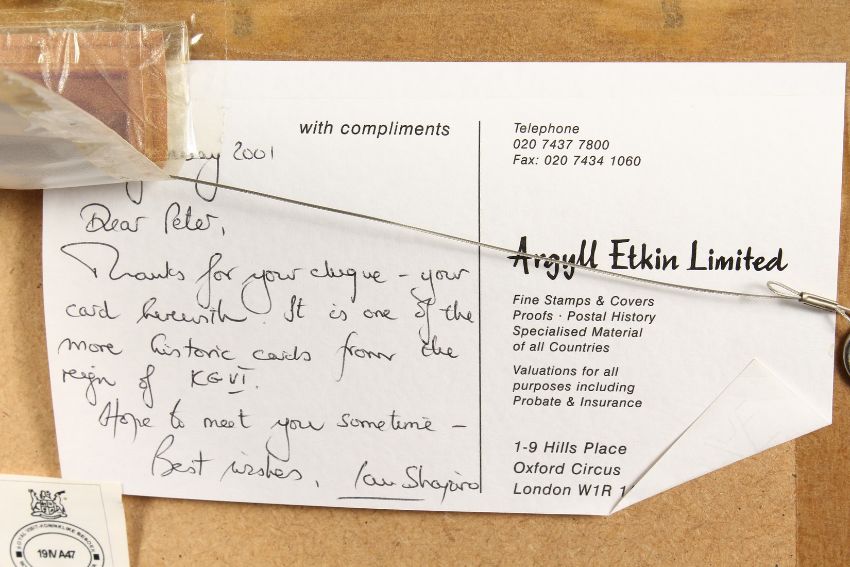 with compliments
2001
Dear Peter,
Thanks for your cheque – your
card herewith. It is one of the
more historic cards from the
reign of KGVI.
Hope to meet you sometime –
Best wishes, Ian Shapiro
Telephone
020 7437 7800
Fax: 020 7434 1060
Argyll Etkin Limited
Fine Stamps & Covers
Proofs · Postal History
Specialised Material
of all Countries
Valuations for all
purposes including
Probate & Insurance
1-9 Hills Place
Oxford Circus
London W1R
ROYAL VISIT-KONINKLIKE BESOEK
19 IV A47